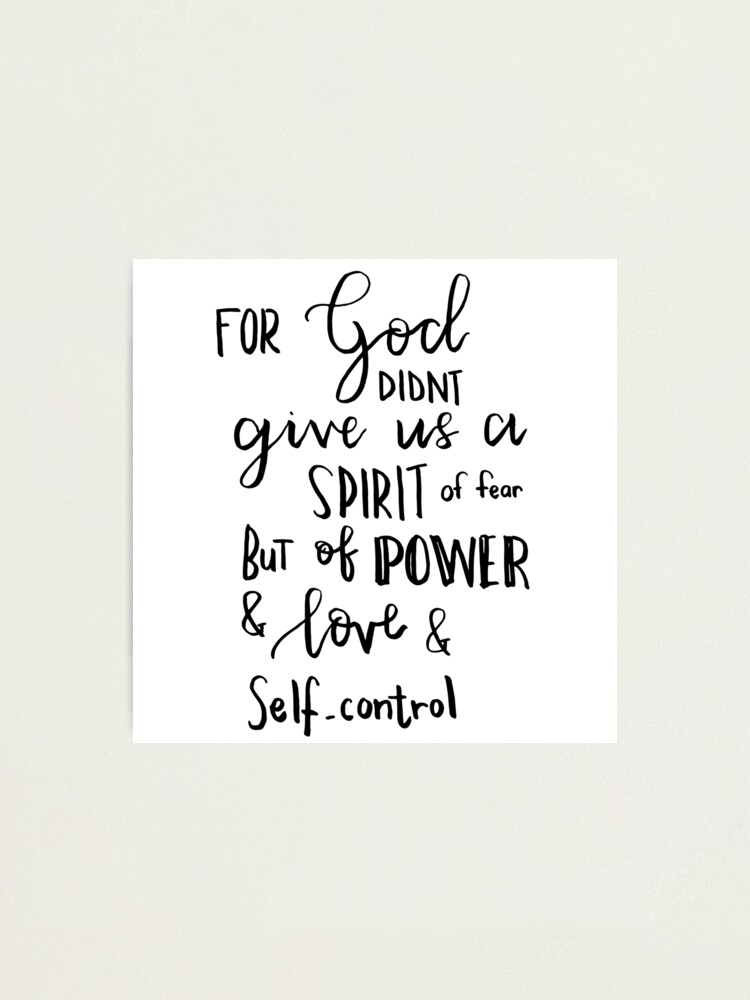 FOR God
DIDNT
give us a
SPIRIT of fear
BUT of POWER
& love &
Self-control